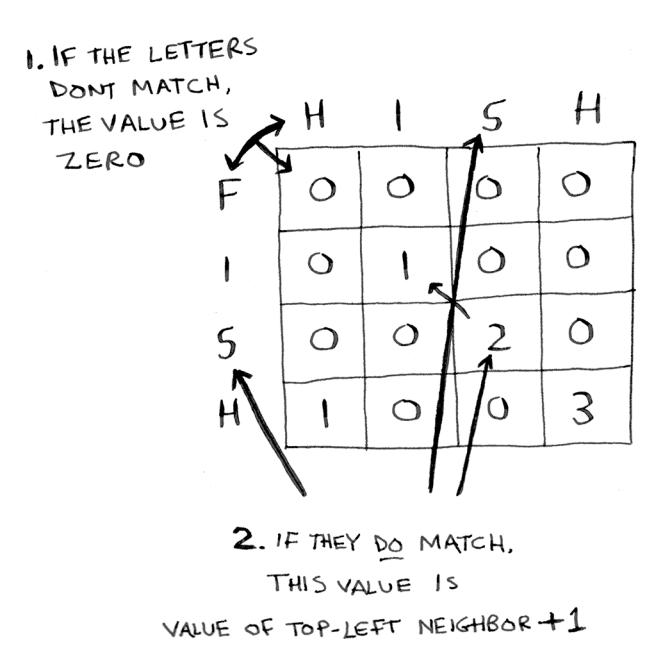 1. IF THE LETTERS
DONT MATCH,
THE VALUE IS
ZERO
H I S H
F 0 0 0 0
I 0 1 0 0
S 0 0 2 0
H 1 0 0 3
2. IF THEY DO MATCH,
THIS VALUE IS
VALUE OF TOP-LEFT NEIGHBOR +1